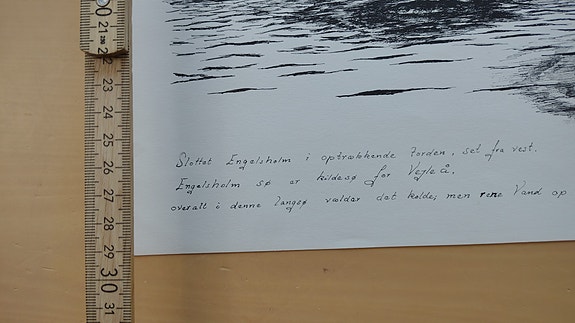 20
21
22
23
24
25
26
27
28
29
30
31
Slottet Engelsholm i optrækkende Torden, set fra vest.
Engelsholm sø er kildesø for Vejle å,
overalt i denne langsø vælder det kolde, men rene Vand op